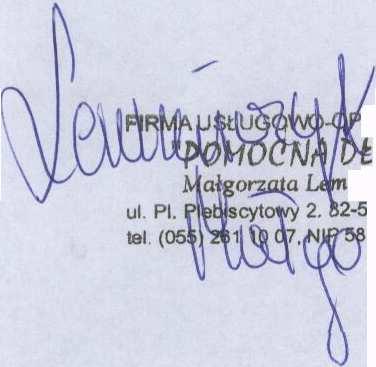 FIRMA USŁUGOWO-OP
"POMOCNA DŁ
Małgorzata Lem
ul. Pl. Plebiscytowy 2. 82-5
tel. (055) 261 10 07, NIP 58